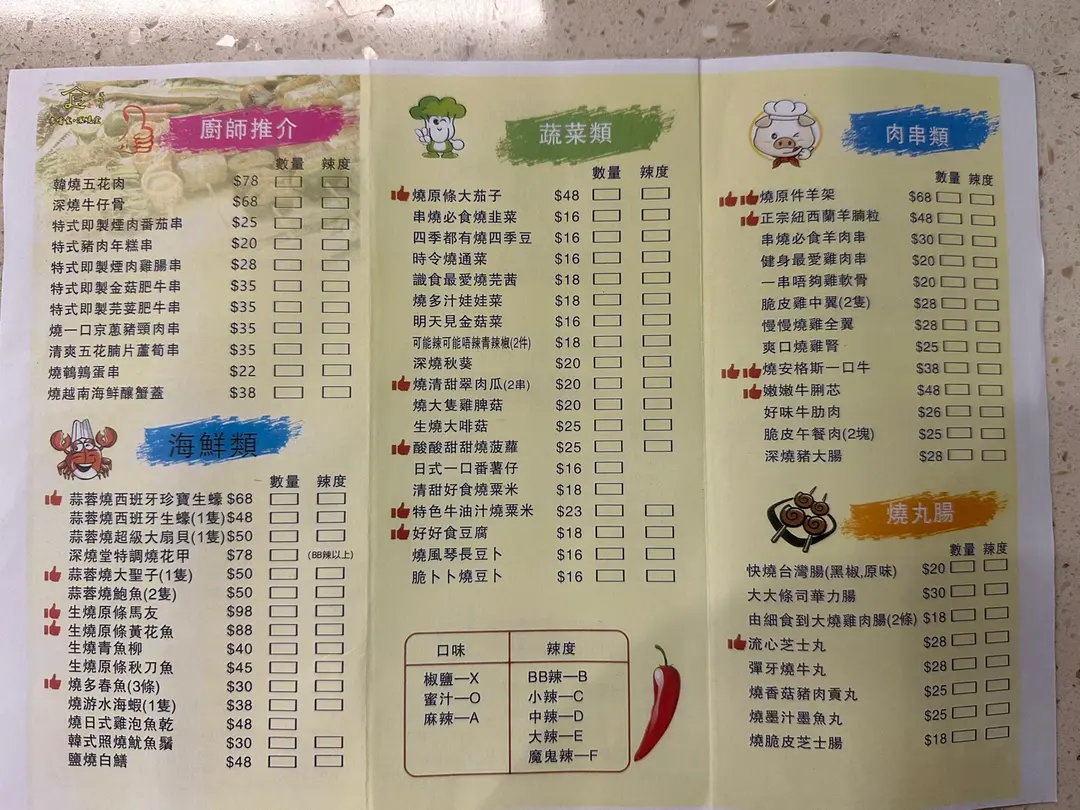 食
廚師推介
數量 辣度
韓燒五花肉 $78
深燒牛仔骨 $68
特式即製煙肉番茄串 $25
特式豬肉年糕串 $20
特式即製煙肉雞腸串 $28
特式即製金菇肥牛串 $35
特式即製芫荽肥牛串 $35
燒一口京蔥豬頸肉串 $35
清爽五花腩片蘆筍串 $35
燒鵪鶉蛋串 $22
燒越南海鮮釀蟹蓋 $38
海鮮類
數量 辣度
蒜蓉燒西班牙珍寶生蠔 $68
蒜蓉燒西班牙生蠔(1隻) $48
蒜蓉燒超級大扇貝(1隻) $50
深燒堂特調燒花甲 $78 (BB辣以上)
蒜蓉燒大聖子(1隻) $50
蒜蓉燒鮑魚(2隻) $50
生燒原條馬友 $98
生燒原條黃花魚 $88
生燒青魚柳 $40
生燒原條秋刀魚 $45
燒多春魚(3條) $30
燒游水海蝦(1隻) $38
燒日式雞泡魚乾 $48
韓式照燒魷魚鬚 $30
鹽燒白鱔 $48
蔬菜類
數量 辣度
燒原條大茄子 $48
串燒必食燒韭菜 $16
四季都有燒四季豆 $16
時令燒通菜 $16
識食最愛燒芫茜 $18
燒多汁娃娃菜 $18
明天見金菇菜 $16
可能辣可能唔辣青辣椒(2件) $18
深燒秋葵 $20
燒清甜翠肉瓜(2串) $20
燒大隻雞脾菇 $20
生燒大啡菇 $25
酸酸甜甜燒菠蘿 $25
日式一口番薯仔 $16
清甜好食燒粟米 $18
特色牛油汁燒粟米 $23
好好食豆腐 $18
燒風琴長豆卜 $16
脆卜卜燒豆卜 $16
口味 辣度
椒鹽—X BB辣—B
蜜汁—O 小辣—C
麻辣—A 中辣—D
大辣—E
魔鬼辣—F
肉串類
數量 辣度
燒原件羊架 $68
正宗紐西蘭羊腩粒 $48
串燒必食羊肉串 $30
健身最愛雞肉串 $20
一串唔夠雞軟骨 $20
脆皮雞中翼(2隻) $28
慢慢燒雞全翼 $28
爽口燒雞腎 $25
燒安格斯一口牛 $38
嫩嫩牛脷芯 $48
好味牛肋肉 $26
脆皮午餐肉(2塊) $25
深燒豬大腸 $28
燒丸腸
數量 辣度
快燒台灣腸(黑椒,原味) $20
大大條司華力腸 $30
由細食到大燒雞肉腸(2條) $18
流心芝士丸 $28
彈牙燒牛丸 $28
燒香菇豬肉貢丸 $25
燒墨汁墨魚丸 $25
燒脆皮芝士腸 $18